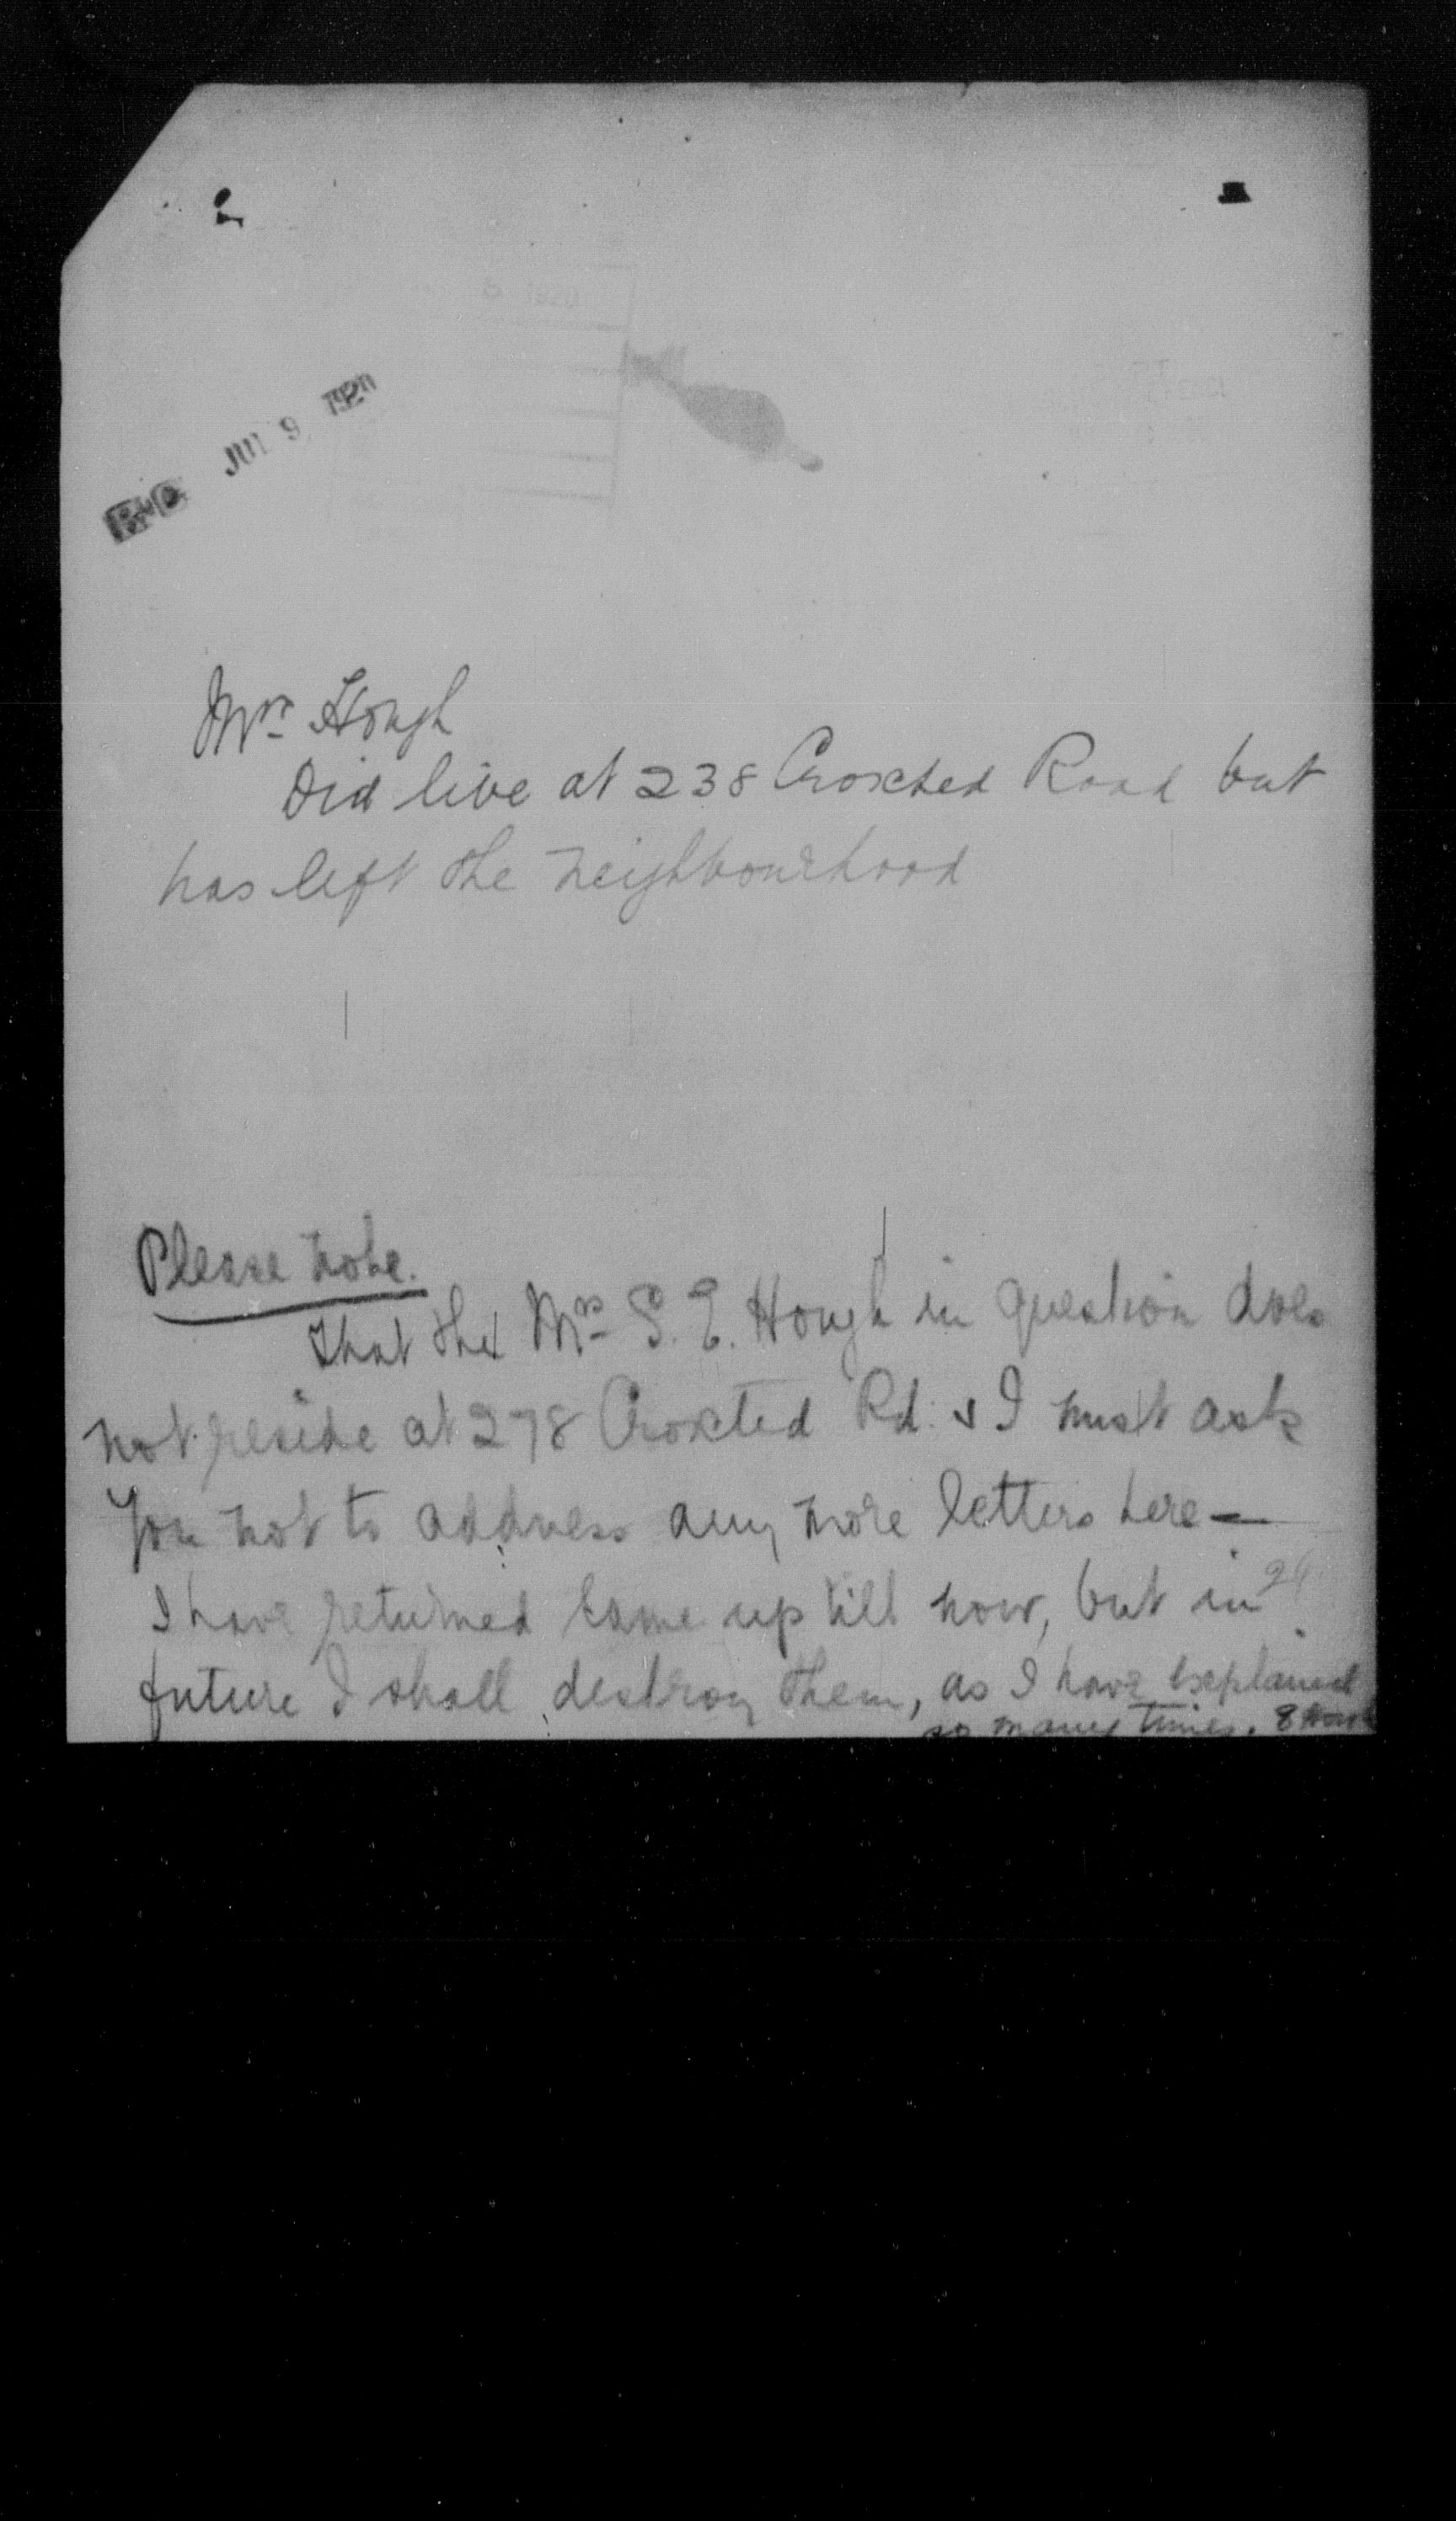 JUL 9 1920
Mrs Hough
Did live at 238 Croxted Road but
has left the neighbourhood
Please note.
that the Mrs S. E. Hough in question does
not reside at 278 Croxted Rd. & I must ask
you not to address any more letters here —
I have returned same up till now, but in
future I shall destroy them, as I have explained
so many times.